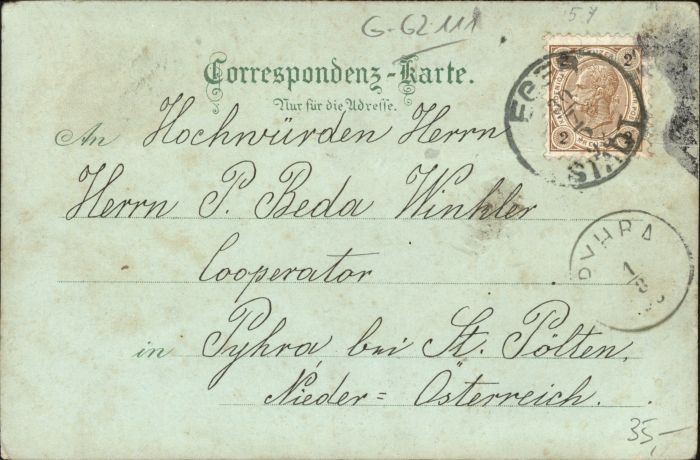 G-62111
57
Correspondenz-Karte.
Nur für die Adresse.
An Hochwürden Herrn
Herrn P. Beda Winkler
Cooperator
in Pyhra bei St. Pölten,
Nieder=Österreich.
2 2
2 2
STADT
PYHRA
1/8
35,-